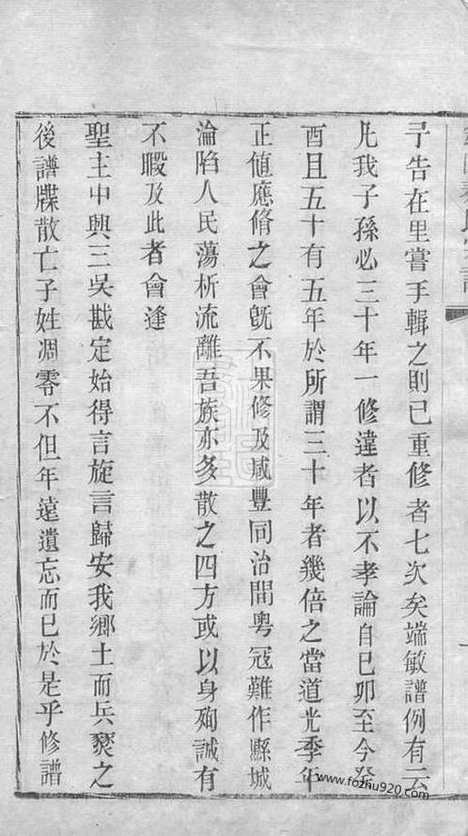 予告在里嘗手輯之則已重修者七次矣端敏譜例有云
凡我子孫必三十年一修違者以不孝論自已卯至今癸
酉且五十有五年於所謂三十年者幾倍之當道光季年
正値應脩之會旣不果修及咸豐同治間粵冦難作縣城
淪陷人民蕩析流離吾族亦多散之四方或以身殉誠有
不暇及此者會逢
聖主中興三吳戡定始得言旋言歸安我鄉土而兵燹之
後譜牒散亡子姓凋零不但年遠遺忘而已於是乎修譜
www.fozhu920.com